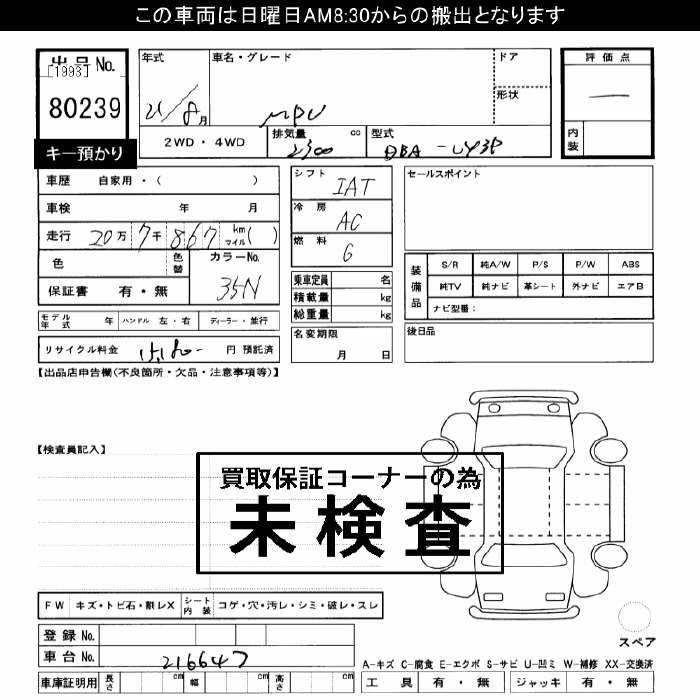 この車両は日曜日AM8:30からの搬出となります
出品No.
[1993]
80239
キー預かり
年式
21/8月
車名・グレード
MPV
ドア
形状
2WD・4WD
排気量 cc
2300
型式
DBA-LY3P
評価点
—
内装
車歴 自家用・( )
車検 年 月
走行 20万7千867 km マイル( )
色 色替
カラーNo.
35N
保証書 有・無
モデル年式 年 ハンドル 左・右 ディーラー・並行
リサイクル料金 15,180- 円 預託済
シフト
IAT
冷房
AC
燃料
G
乗車定員 名
積載量 kg
総重量 kg
名変期限
月 日
セールスポイント
装備品
S/R 純A/W P/S P/W ABS
純TV 純ナビ 革シート 外ナビ エアB
ナビ型番:
後日品
【出品店申告欄(不良箇所・欠品・注意事項等)】
【検査員記入】
買取保証コーナーの為
未検査
FW キズ・トビ石・割レX シート内装 コゲ・穴・汚レ・シミ・破レ・スレ
登録No.
車台No. 216647
車庫証明用 長さ cm 幅 cm 高さ cm
スペア
A-キズ C-腐食 E-エクボ S-サビ U-凹ミ W-補修 XX-交換済
工具 有・無 ジャッキ 有・無